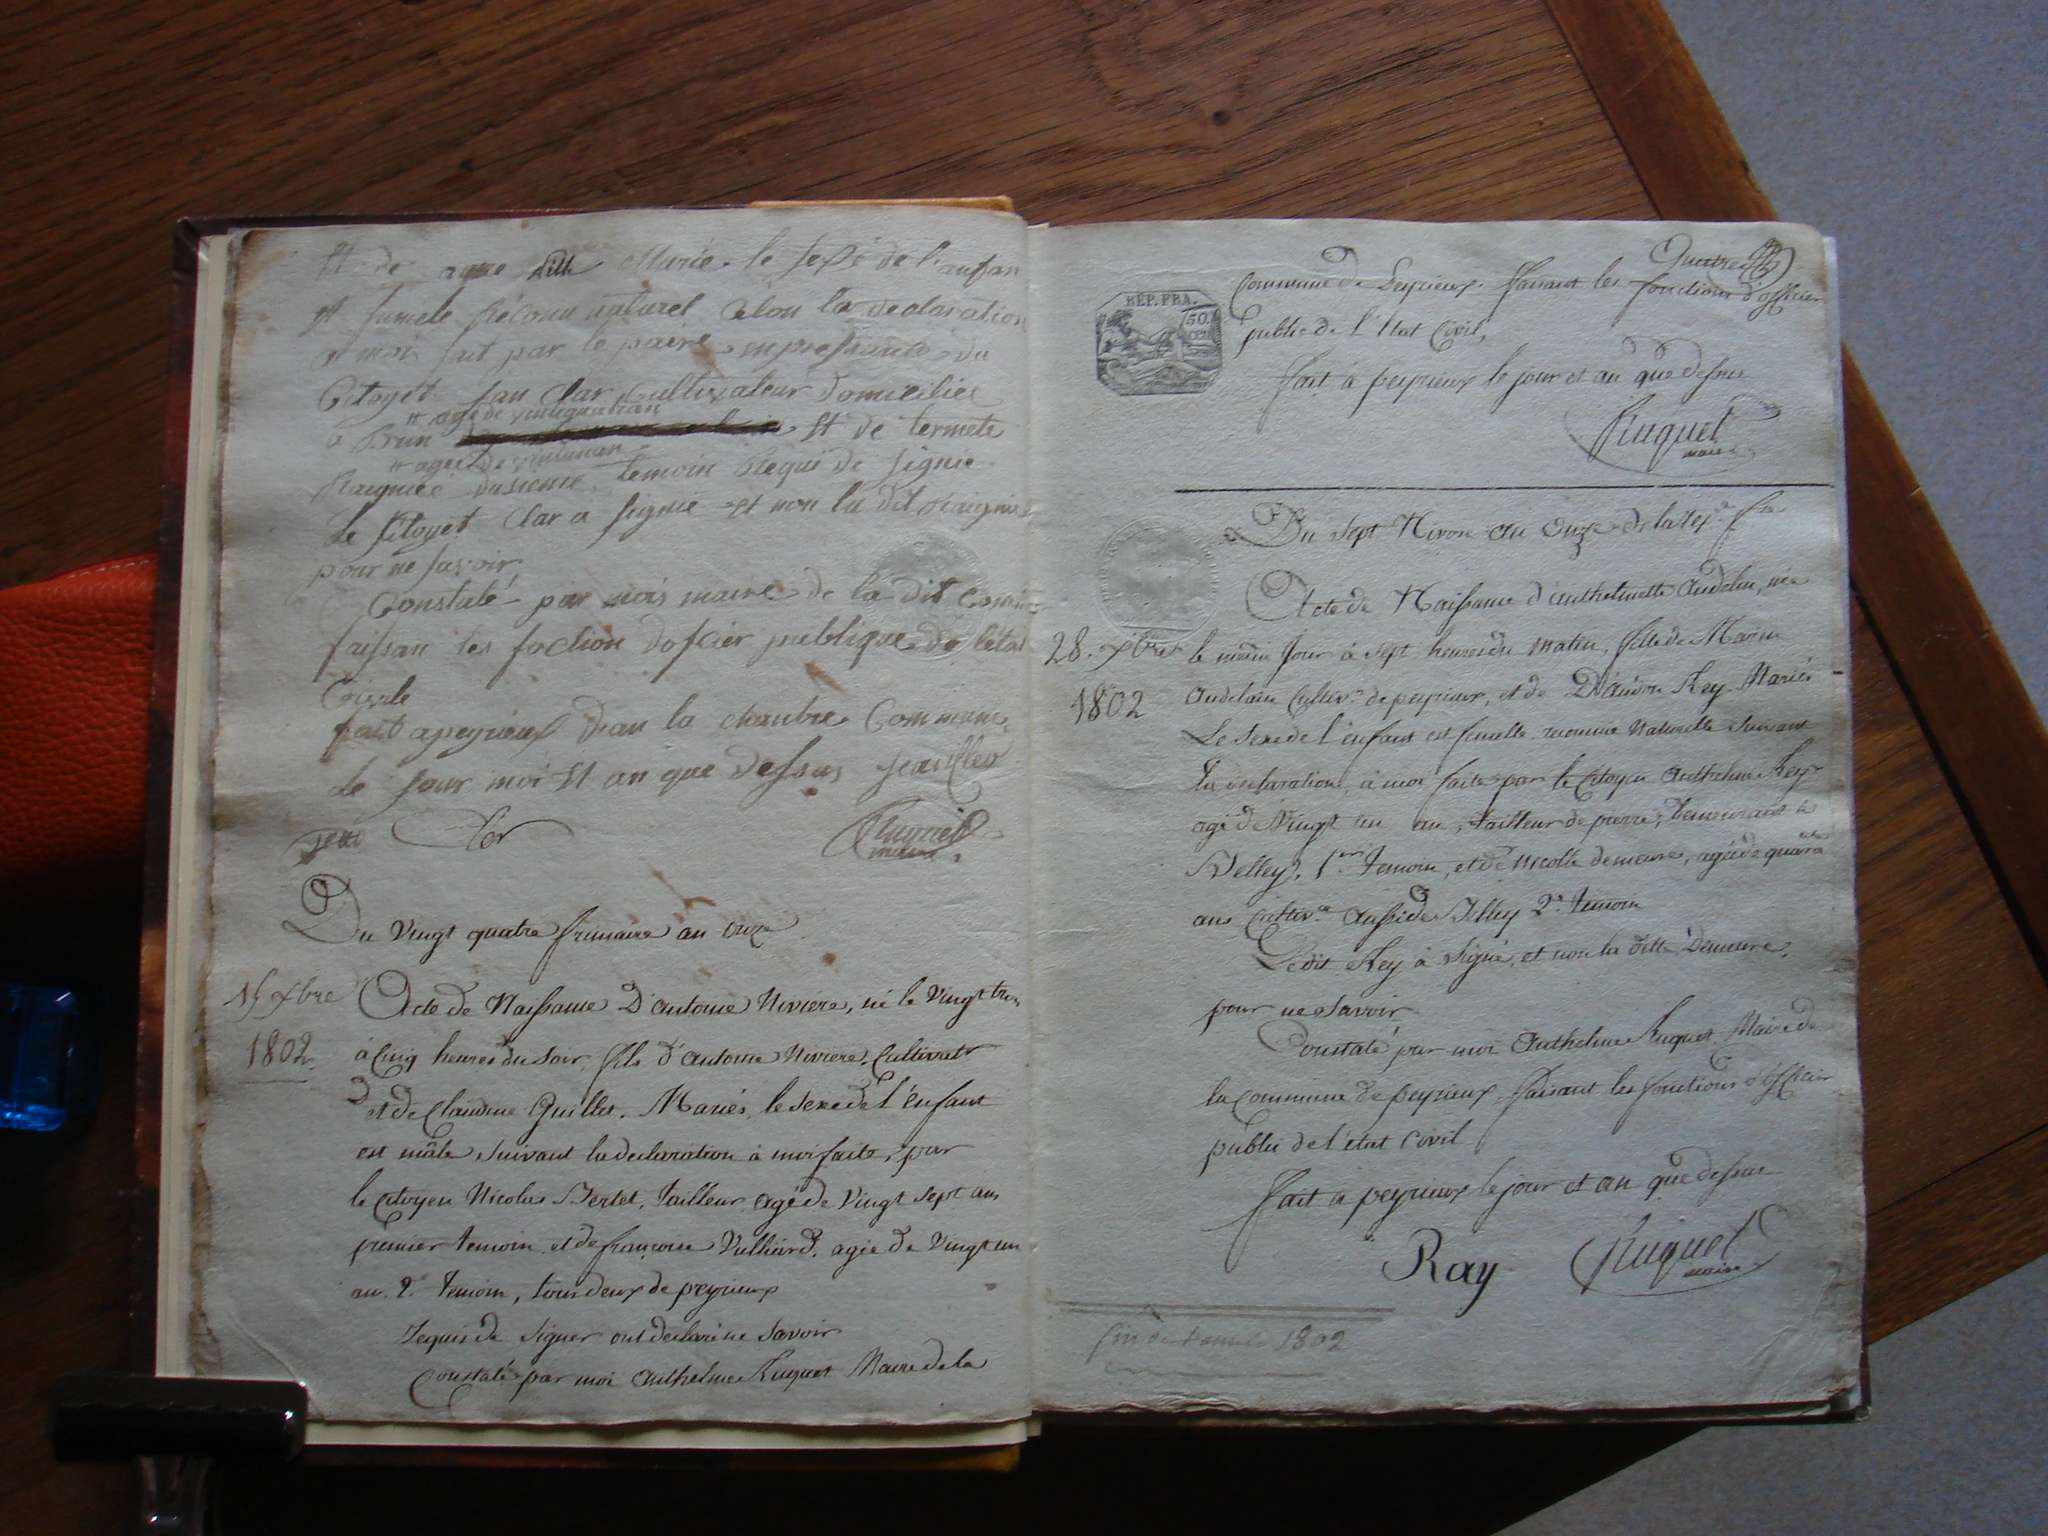 de anne Marie le sexe de l'anfan
et fumele reconu naturel selon la declaration
a moi fait par le paire en presance du
Citoyet Jan Clar cultivateur domicilier
agé de
a Brun et de
agee de
temoin Requi de signie
Le Sitoyet Clar a signie et non la dit
pour ne savoir
Constaté par mois maire de la dit
faissan les foction dofcier publique de létat
Civile
fait a peyrieux dan la chanbre Commune
Le jour moi et an que dessus
Ruquet
maire
Du Vingt quatre frimaire an onze
15 xbre
1802
Acte de Naissance D'antoine Niviere, né le Vingt trois
à Cinq heures du soir, fils d'antoine Niviere, Cultivatr
et de Claudine Guillet. Mariés, le sexe de l'énfant
est mâle suivant la declaration à moi faite, par
le citoyen Nicolas Bertet, tailleur agé de Vingt sept ans
premier temoin et de françoise Vulliard, agée de Vingt un
an 2e temoin, tous deux de peyrieux
requis de signer ont declaré ne savoir
Constaté par moi Anthelme Ruquet Maire de la
Commune de Peyrieux faisant les fonctions d'officier
public de l'état Civil,
fait à peyrieux le jour et an que dessus
Ruquet
maire
REP. FRA.
50
Du sept Nivose an onze de la rep. fse
28 xbre
1802
Acte de Naissance d'anthelmette Audelin, née
le même Jour à sept heures du matin, fille de
Cultivr de peyrieux, et de Rey Mariés
Le sexe de l'énfant est femelle reconnue Naturelle suivant
la déclaration à moi faite par le Citoyen Anthelme Rey
agé de Vingt un an, tailleur de pierre, demeurant à
Belley, 1er temoin, et de Nicolle demeure, agée de quarante
ans Cultivce Aussi de Belley 2e temoin
Le dit Rey à signé et non la ditte demeure
pour ne savoir
Constaté par moi Anthelme Ruquet Maire de
la Commune de peyrieux faisant les fonctions d'officier
public de l'état Civil
fait à peyrieux le jour et an que dessus
Ray
Ruquet
maire
fin de l'année 1802